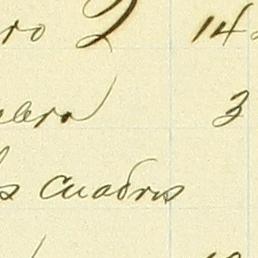 ro 2 14
lero 3
s cuadros